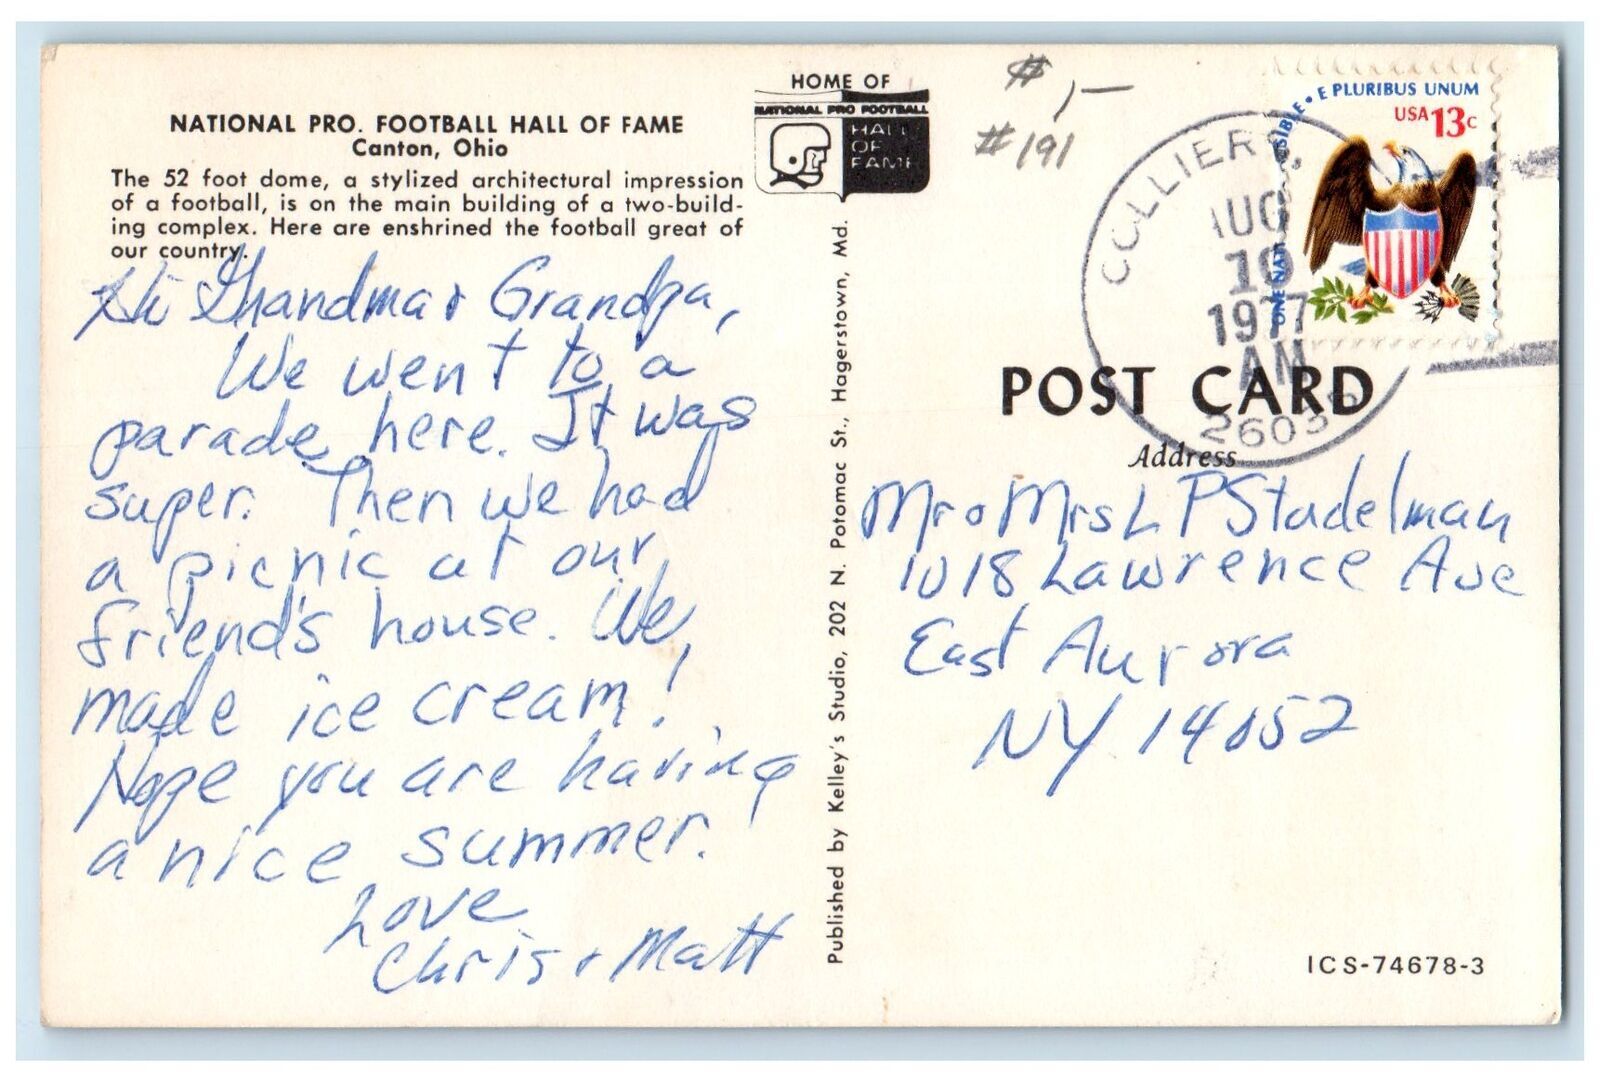 NATIONAL PRO. FOOTBALL HALL OF FAME
Canton, Ohio
The 52 foot dome, a stylized architectural impression
of a football, is on the main building of a two-build-
ing complex. Here are enshrined the football great of
our country.
HOME OF
NATIONAL PRO FOOTBALL
HALL
OF
FAME
Hi Grandma & Grandpa,
We went to a
parade here. It was
super. Then we had
a picnic at our
friend's house. We
made ice cream!
Hope you are having
a nice summer.
Love
Chris & Matt
Published by Kelley's Studio, 202 N. Potomac St., Hagerstown, Md.
# 1-
#191
COLLIERS
AUG
10
1977
AM
2603
ONE NATION
SIBLE • E PLURIBUS UNUM
USA 13c
POST CARD
Address
Mr & Mrs L P Stadelman
1018 Lawrence Ave
East Aurora
NY 14052
ICS-74678-3